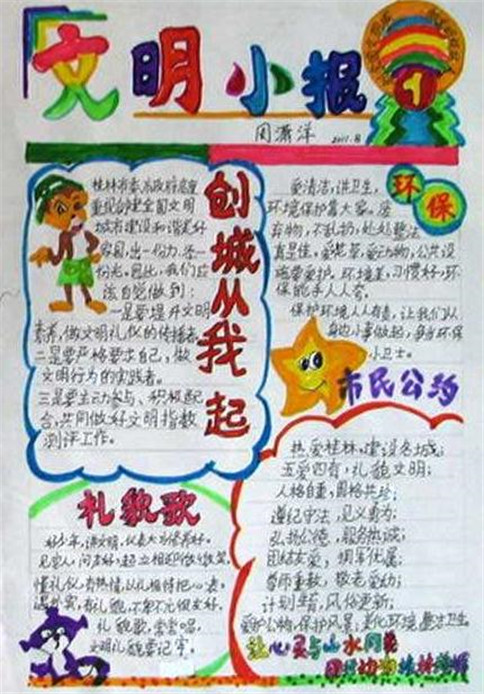 文明小报
1
周潇洋
2011.8
创城从我起
桂林市委市政府启度
重视创建全国文明
城市建设和谐美好
家园,出一份力,尽一
份光,因此,我们应
该自觉做到:
一是要提升文明
素养,做文明礼仪的传播者。
二是要严格要求自己,做
文明行为的实践者。
三是要主动参与、积极配
合,共同做好文明指数
测评工作。
环保
爱清洁,讲卫生,
环境保护靠大家。废
弃物,不乱扔,处处整洁
真是佳,爱花草,爱动物,公共设
施要爱护,环境美,习惯好,环
保能手人人夸。
保护环境人人有责,让我们从
身边小事做起,争当环保
小卫士。
市民公约
热爱桂林,建设名城;
五爱四有,礼貌文明;
人格自重,国格共珍;
遵纪守法,见义勇为;
弘扬公德,服务热诚;
团结友爱,拥军优属;
尊师重教,敬老爱幼;
计划生育,风俗更新;
爱护公物,保护风景;美化环境,整洁卫生
让心灵与山水同美
礼貌歌
好少年,讲文明,仪表大方修养好。
见客人,问声好,起立相迎微微笑。
懂礼仪,有热情,以礼相待把心表。
有礼貌
礼貌歌,常常唱,
文明礼貌要记牢。